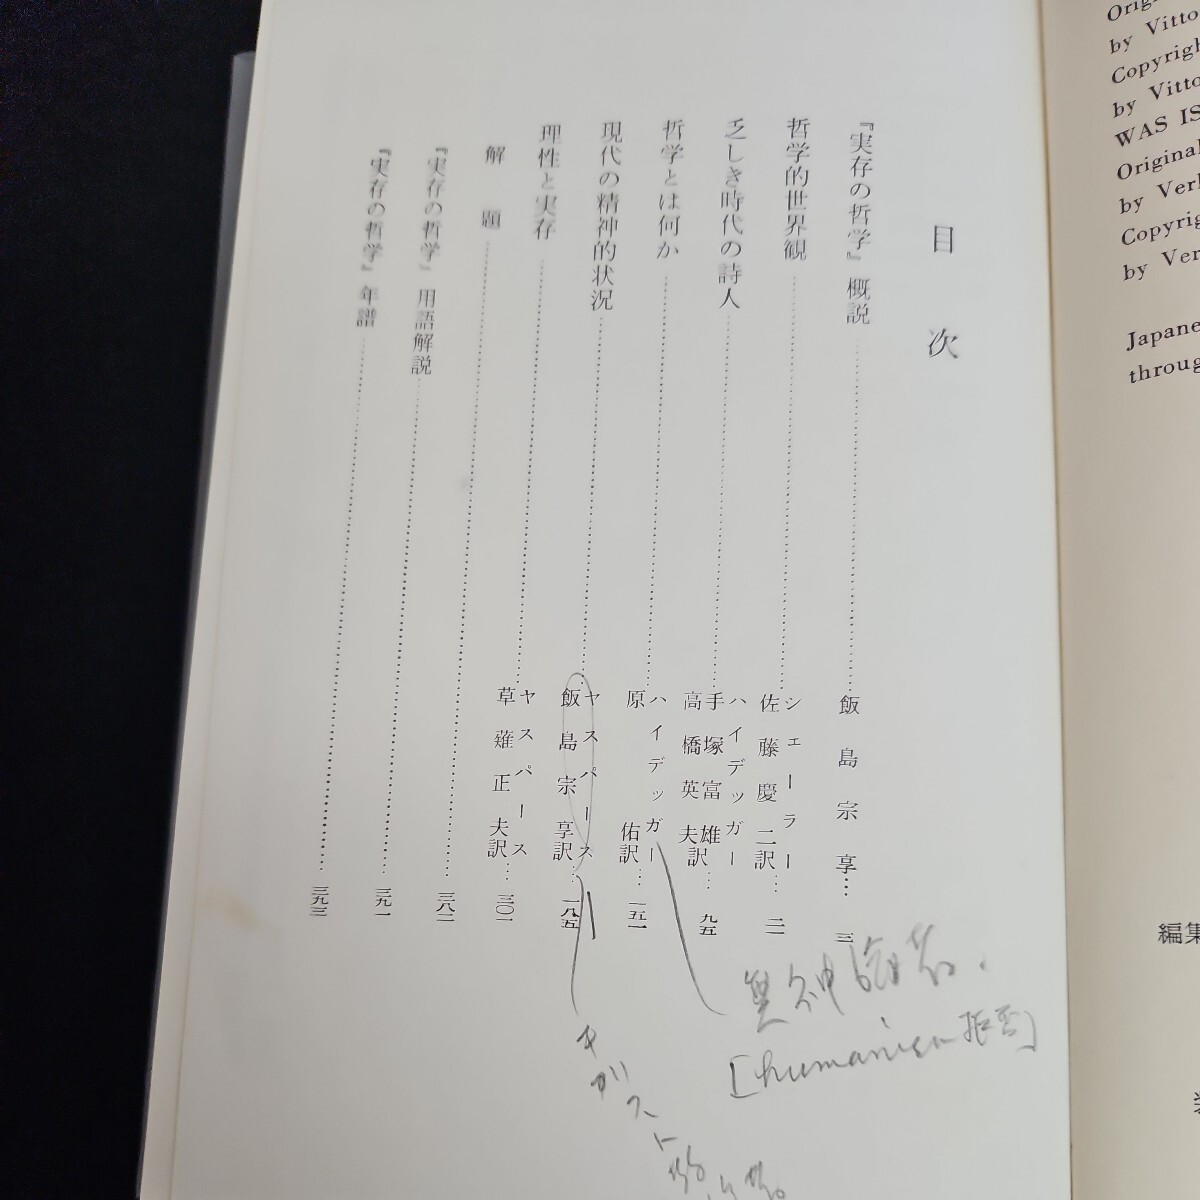 目次
『実存の哲学』概説……飯島宗享…三
哲学的世界観……シェーラー 佐藤慶二訳…二一
乏しき時代の詩人……ハイデッガー 手塚富雄 高橋英夫訳…九五
哲学とは何か……ハイデッガー 原佑訳…一五一
現代の精神的状況……ヤスパース 飯島宗享訳…一八五
理性と実存……ヤスパース 草薙正夫訳…三〇一
解題……三八二
『実存の哲学』用語解説……三九一
『実存の哲学』年譜……三九三
無神論者.
[humanism 拒否]
Orig
by Vitto
Copyrigh
by Vitto
WAS IS
Original
by Verl
Copyrig
by Ver
Japane
throug
編集